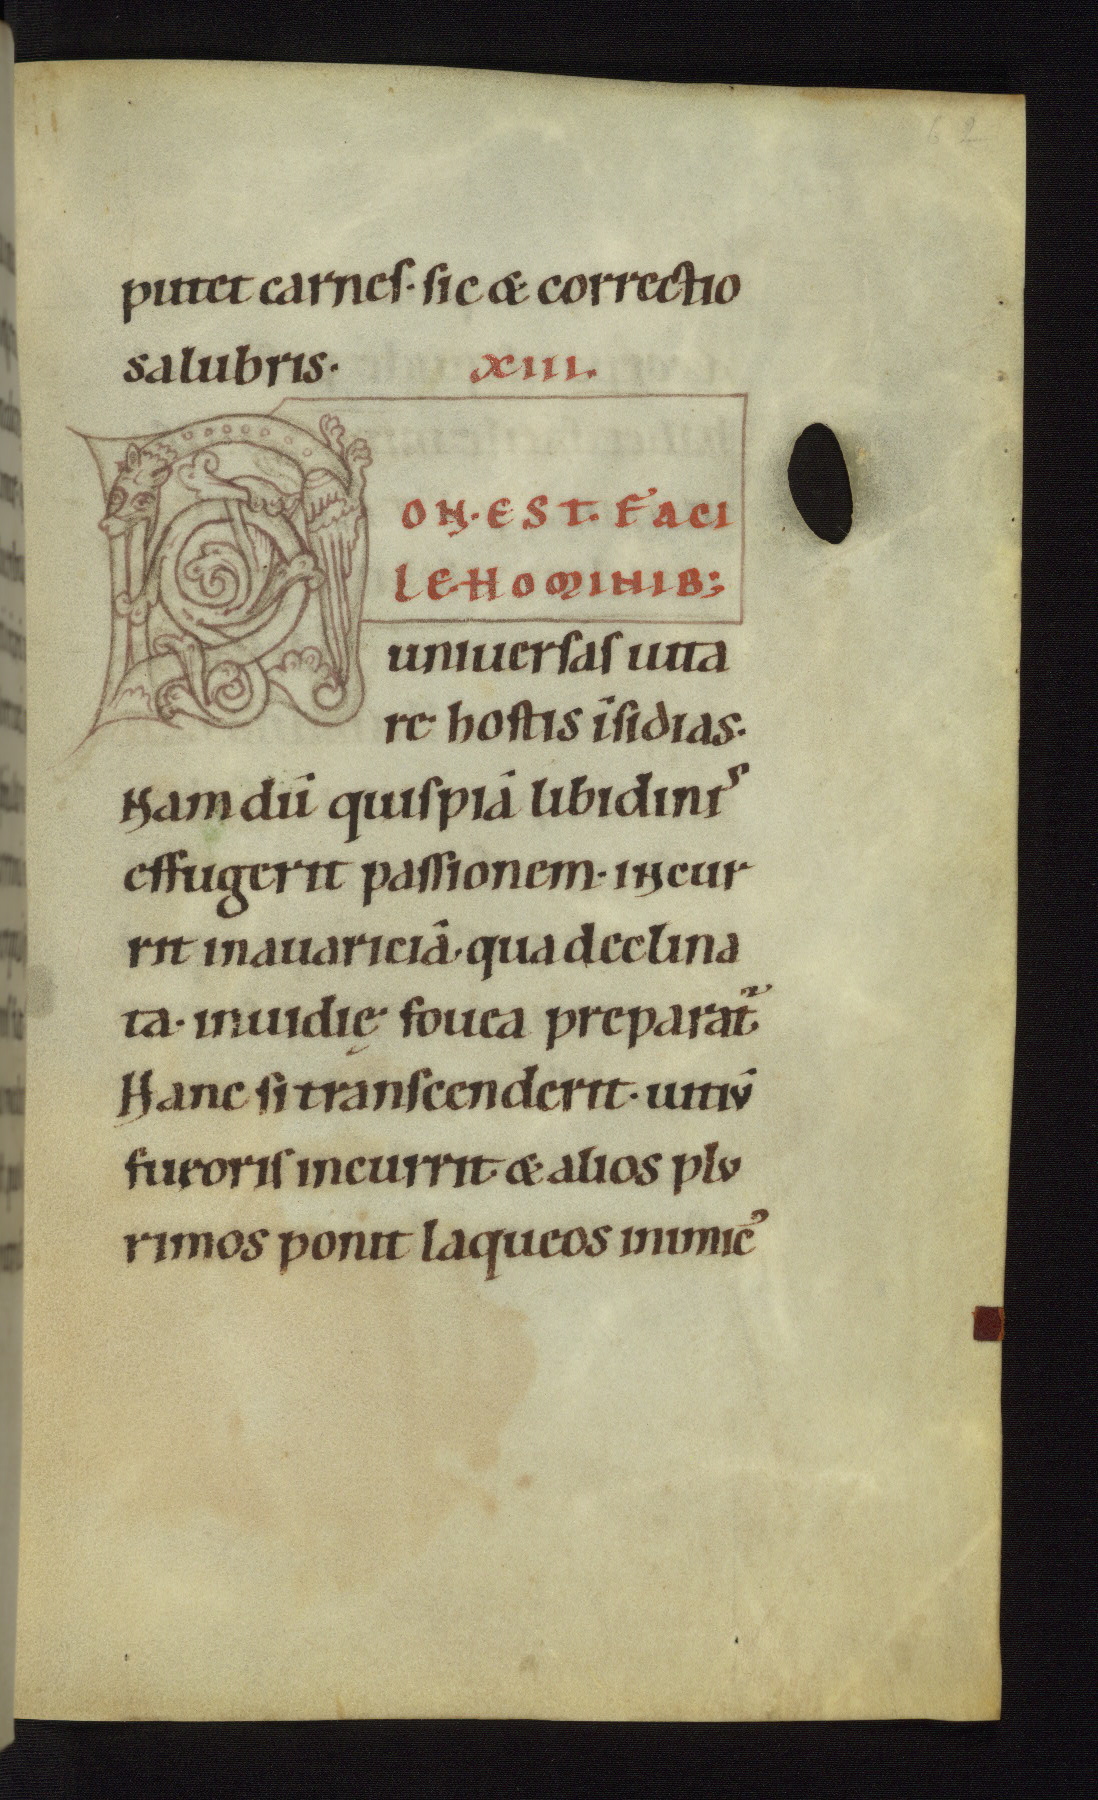 putet carnes· sic & correctio
salubris· XIII.
NON·EST·FACI
LE HOMINIB;
uniuersas uita
re hostis īsidias·
Nam dū quispiā libidinis
effugerit passionem· incur
rit inauariciā· qua declina
ta· inuidię fouea preparat᷑
Hanc si transcenderit· uitiū
furoris incurrit· & alios plu
rimos ponit laqueos inimic᷒